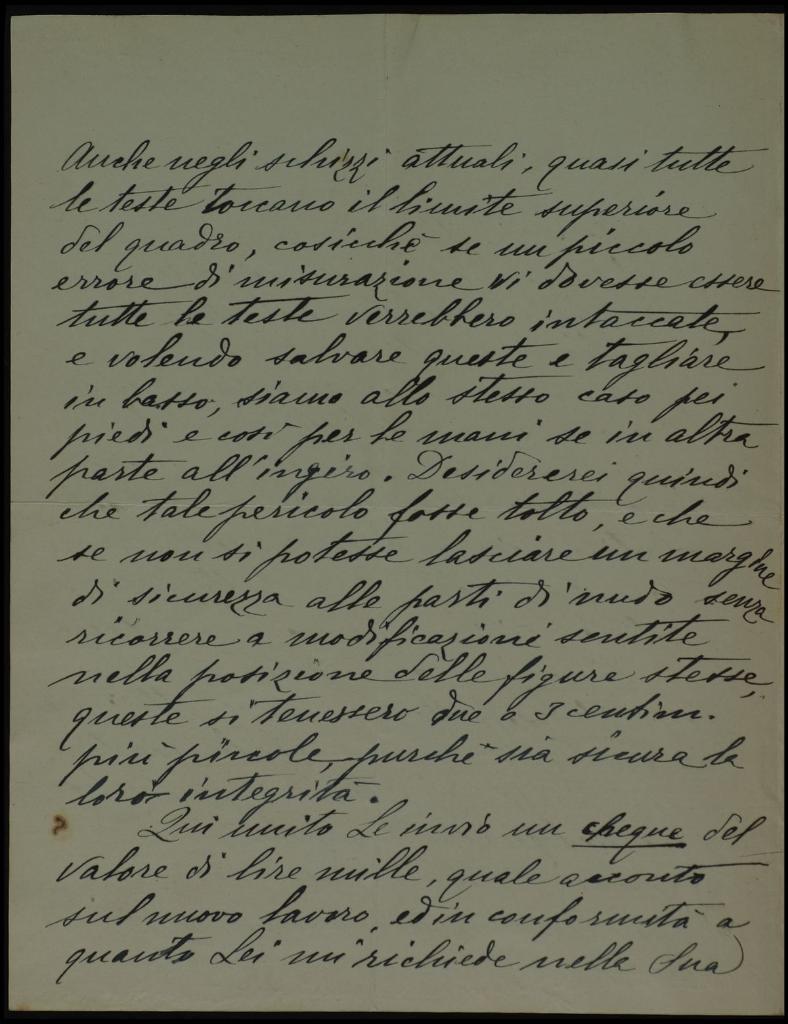 Anche negli schizzi attuali, quasi tutte
le teste toccano il limite superiore
del quadro, cosicchè se un piccolo
errore di misurazione vi dovesse essere
tutte le teste verrebbero intaccate,
e volendo salvare queste e tagliare
in basso, siamo allo stesso caso pei
piedi e così per le mani se in altra
parte all'ingiro. Desidererei quindi
che tale pericolo fosse tolto, e che
se non si potesse lasciare un margine
di sicurezza alle parti di nudo senza
ricorrere a modificazioni sentite
nella posizione delle figure stesse,
queste si tenessero due o 3 centim.
più piccole, purchè sia sicura la
loro integrità.
Qui unito Le invio un cheque del
valore di lire mille, quale acconto
sul nuovo lavoro, ed in conformità a
quanto Lei mi richiede nella Sua